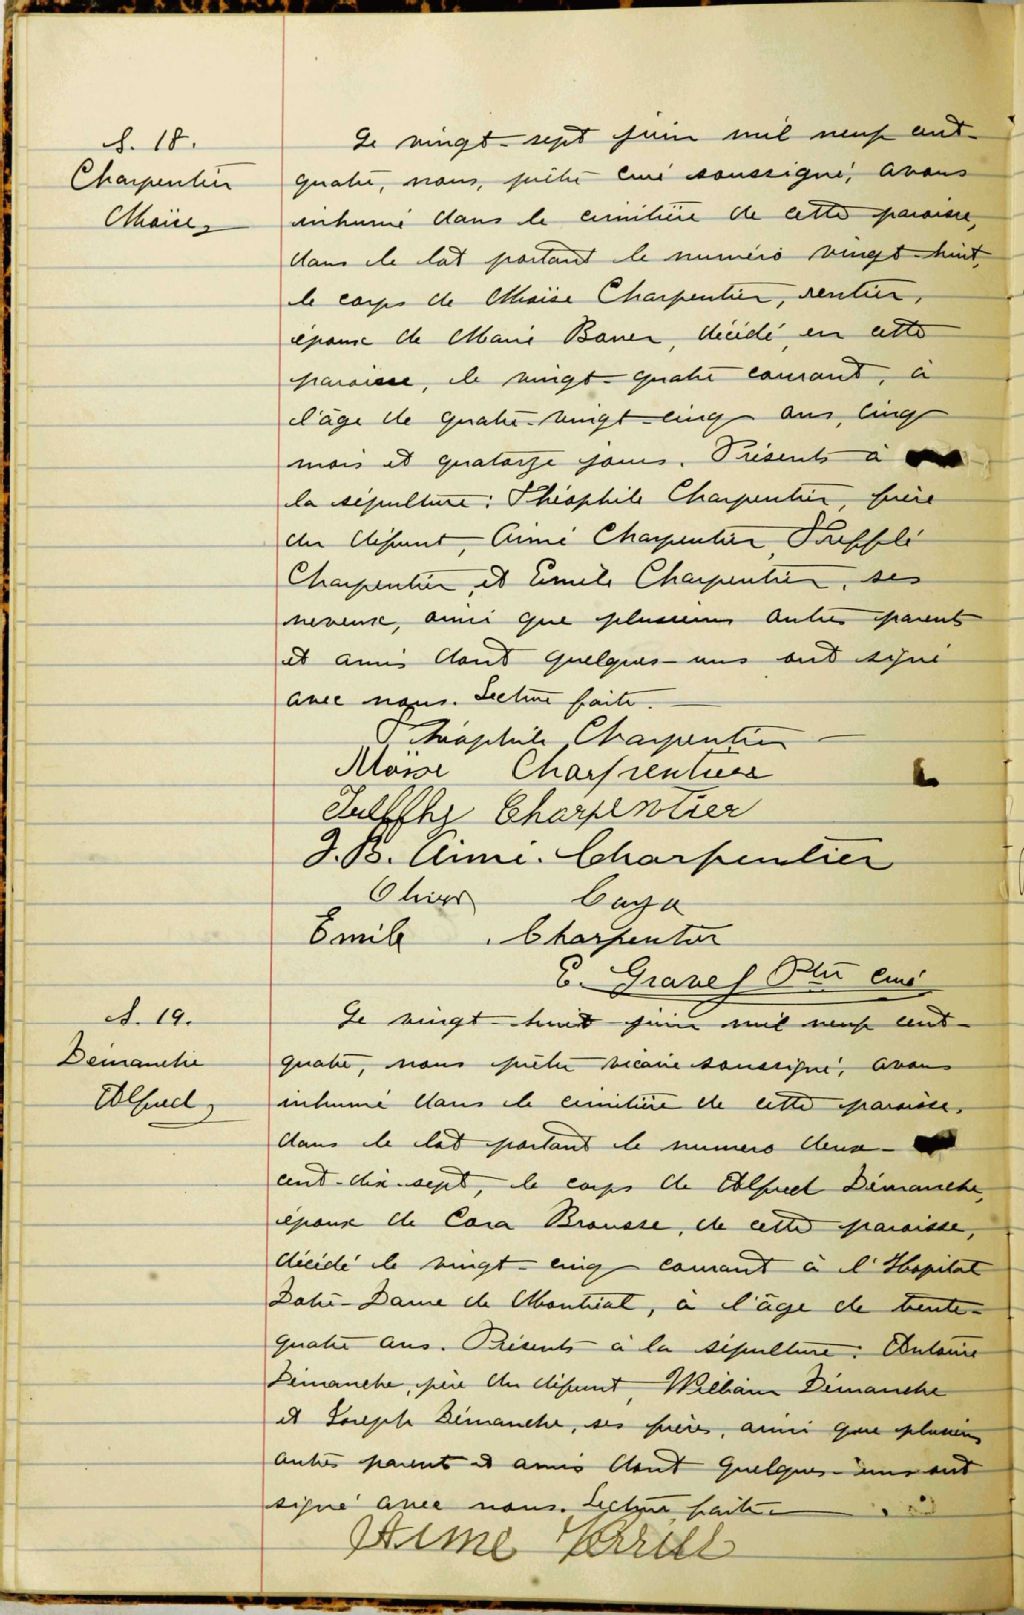 S. 18.
Charpentier
Moïse
Le vingt-sept juin mil neuf cent-
quatre, nous, prêtre curé soussigné, avons
inhumé dans le cimitière de cette paroisse,
dans le lot portant le numéro vingt-huit,
le corps de Moïse Charpentier, rentier,
époux de Marie Boner, décédé, en cette
paroisse, le vingt-quatre courant, à
l'âge de quatre-vingt-cinq ans, cinq
mois et quatorze jours. Présents à
la sépulture: Théophile Charpentier, frère
du défunt, Aimé Charpentier, Trefflé
Charpentier, et Emile Charpentier, ses
neveux, ainsi que plusieurs autres parents
et amis dont quelques-uns ont signé
avec nous. Lecture faite.
Théophile Charpentier
Moïse Charpentier
Charpentier
J. B. Aimé. Charpentier
Caya
Emile Charpentier
E. Gravel Ptre curé
S. 19.
Démanche
Alfred
Le vingt-huit juin mil neuf cent-
quatre, nous prêtre vicaire soussigné, avons
inhumé dans le cimitière de cette paroisse,
dans le lot portant le numero deux-
cent-dix-sept, le corps de Alfred Démanche,
époux de Cora Brousse, de cette paroisse,
décédé le vingt-cinq courant à l'Hopital
Notre-Dame de Montréal, à l'âge de trente-
quatre ans. Présents à la sépulture: Antoine
Démanche, père du défunt, William Démanche
et Joseph Démanche, ses frères, ainsi que plusieurs
autres parents et amis dont quelques-uns ont
signé avec nous. Lecture faite.
Aimé